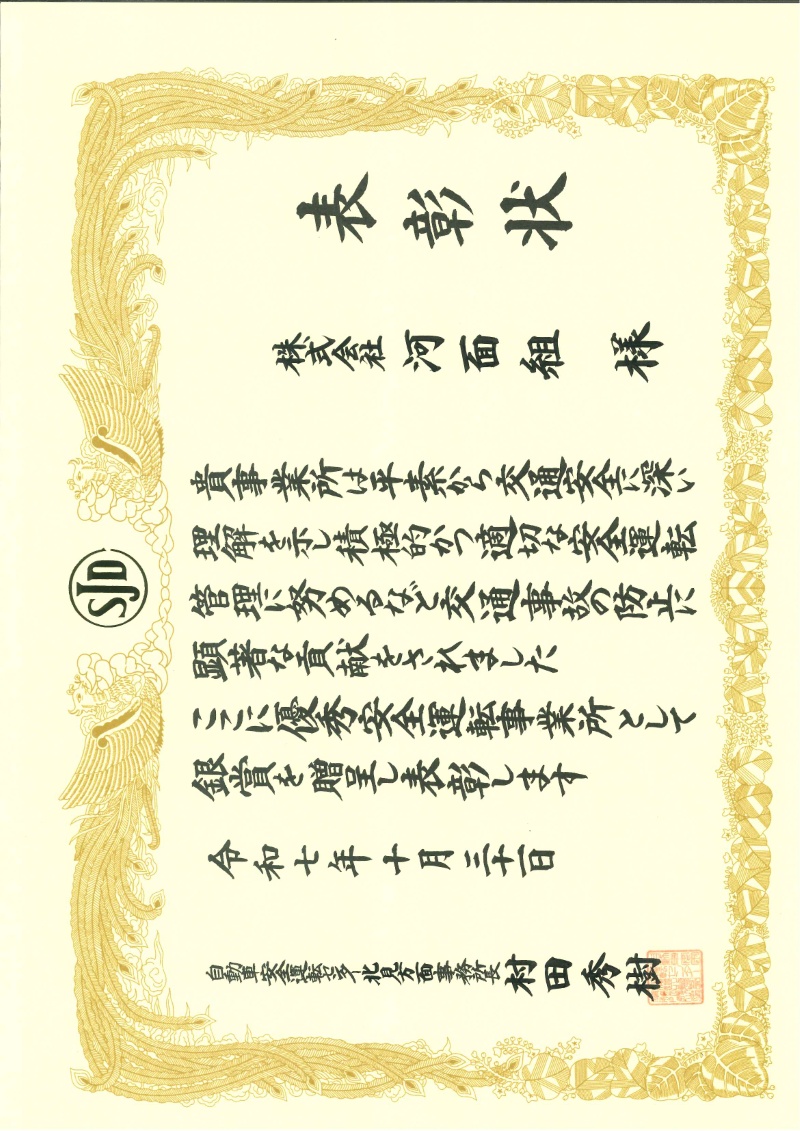 表彰状
株式会社 河面組 様
貴事業所は平素から交通安全に深い
理解を示し積極的かつ適切な安全運転
管理に努めるなど交通事故の防止に
顕著な貢献をされました
ここに優秀安全運転事業所として
銀賞を贈呈し表彰します
令和七年十月三十一日
自動車安全運転センター北見方面事務所長 村田秀樹
SJD